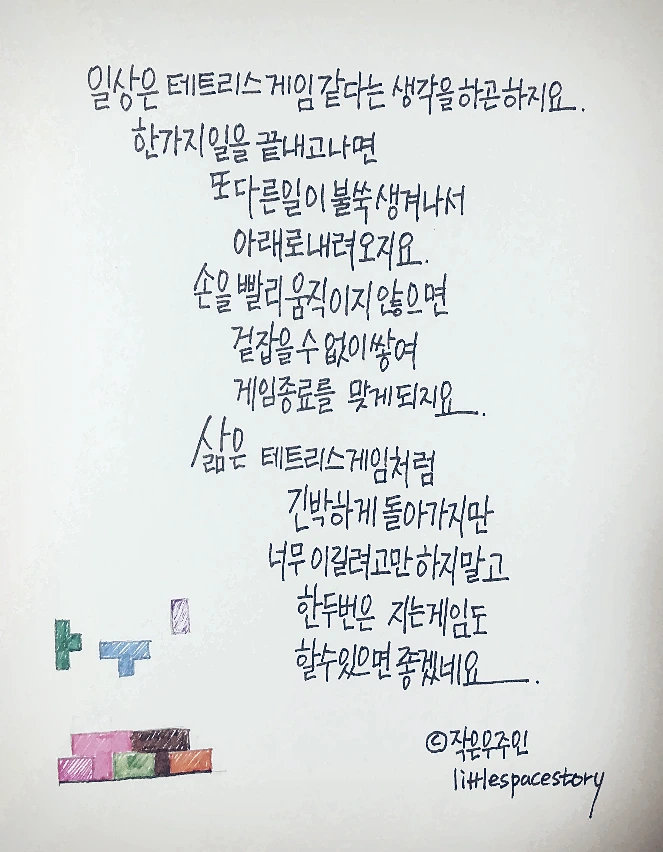 일상은 테트리스 게임 같다는 생각을 하곤하지요.
한가지 일을 끝내고나면
또다른일이 불쑥 생겨나서
아래로 내려오지요.
손을 빨리 움직이지 않으면
겉잡을 수 없이 쌓여
게임종료를 맞게되지요.
삶은 테트리스게임처럼
긴박하게 돌아가지만
너무 이길려고만 하지말고
한두번은 지는게임도
할수있으면 좋겠네요.
©작은우주인
littlespacestory